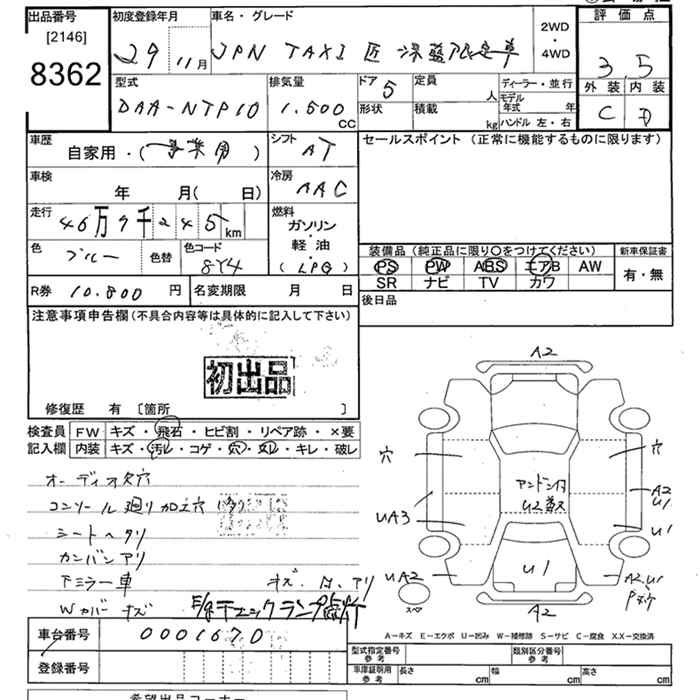 出品番号
[2146]
8362
初度登録年月
29 11月
車名・グレード
JPN TAXI 匠
2WD
・
4WD
評価点
3.5
外装 内装
C D
型式
DAA-NTP10
排気量
1.500
CC
ドア 5
形状
定員 人
積載 kg
ディーラー・並行
モデル年式 年
ハンドル 左・右
車歴
自家用・(事業用)
シフト
AT
車検
年 月(日)
冷房
AAC
走行
46万7千245km
燃料
ガソリン
・
軽・油
(LPG)
色
ブルー
色替
色コード
8Y4
R券 10.800円
名変期限 月 日
セールスポイント (正常に機能するものに限ります)
装備品 (純正品に限り〇をつけてください)
PS PW ABS エアB AW
SR ナビ TV カワ
新車保証書
有・無
後日品
注意事項申告欄(不具合内容等は具体的に記入して下さい)
初出品
修復歴 有 〔箇所 〕
検査員
記入欄
FW キズ・飛石・ヒビ割・リペア跡・×要
内装 キズ・汚レ・コゲ・穴・スレ・キレ・破レ
オーディオ穴
コンソール廻り加工穴
シートヘタリ
カンバンアリ
Fミラー車
Wカバーキズ
チェックランプ点灯
A2
穴
穴
UA3
A2
U1
U1
アンドン付
U1
UA2
A2.U1
スペ
A2
A-キズ E-エクボ U-凹み W-補修跡 S-サビ C-腐食 X.X-交換済
車台番号 0001670
登録番号
型式指定番号
参考
類別区分番号
参考
車庫証明用
参考
長さ cm
幅 cm
高さ cm
希望出品コーナー